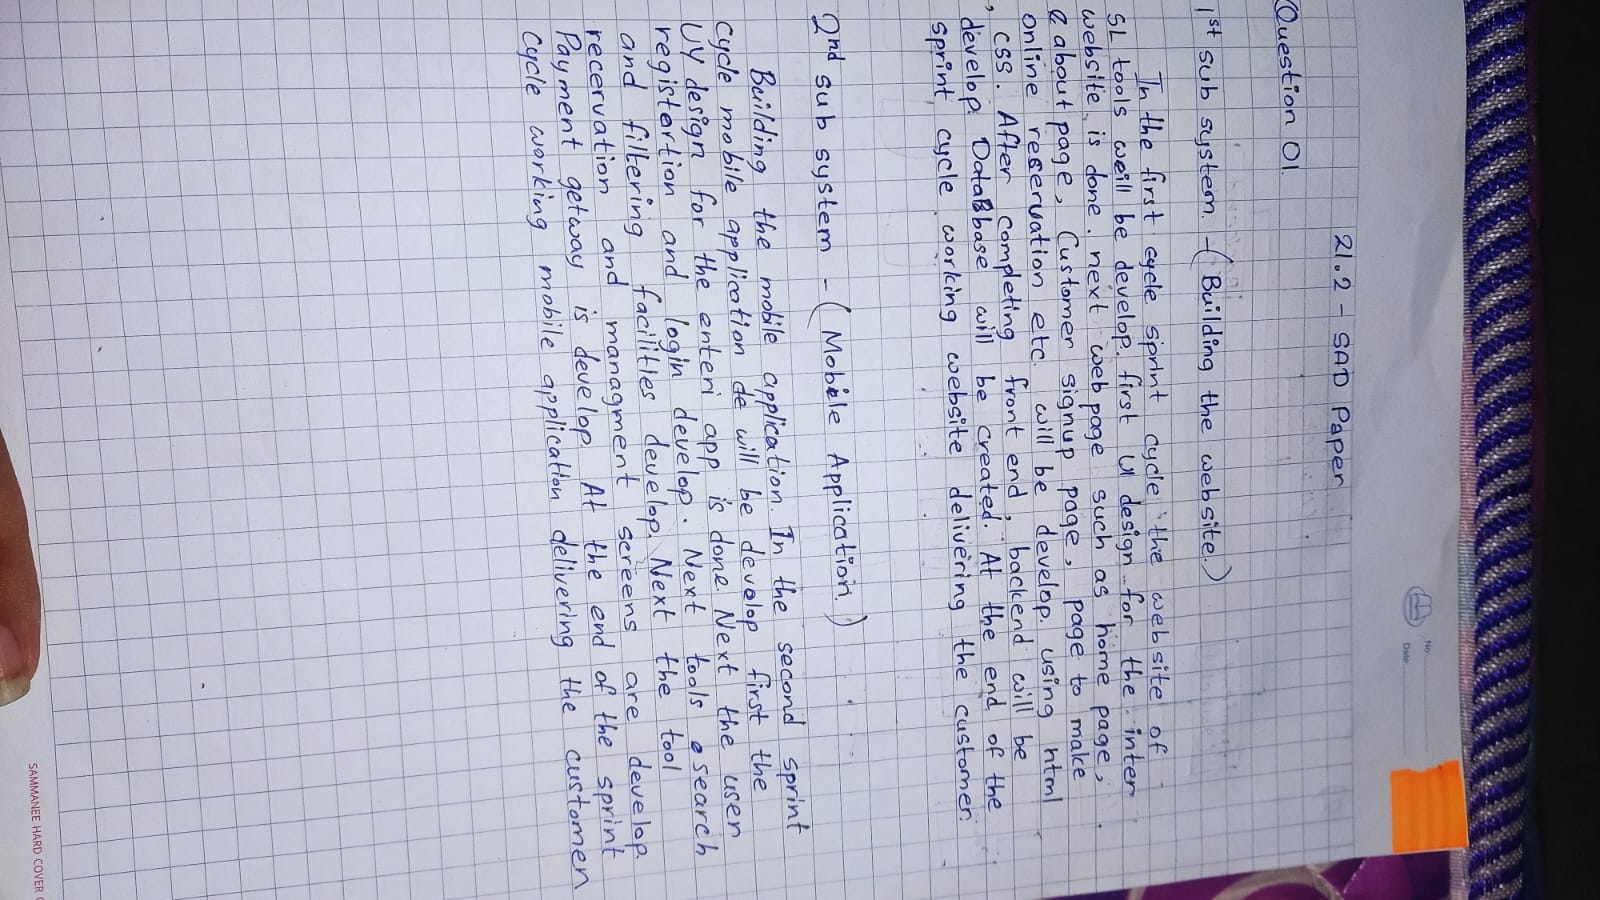 No:
Date:
21.2 - SAD Paper
Question 01.
1st sub system. - (Building the website.)
In the first cycle sprint cycle the website of
SL tools weill be develop. first UI design for the inter
website is done. next web page such as home page,
about page, Customer signup page, page to make
online reservation etc. will be develop. using html
, css. After completing front end, backend will be
develop. DataBbase will be created. At the end of the
sprint cycle working website delivering the customer
2nd sub system - (Mobile Application.)
Building the mobile application. In the second sprint
Cycle mobile application de will be devolop first the
UY design for the enteri app is done. Next the user
registertion and login develop. Next tools search
and filtering facilities develop. Next the tool
recervation and managment screens are develop.
Payment getway is develop. At the end of the sprint
Cycle working mobile application delivering the customer
SAMMANEE HARD COVER